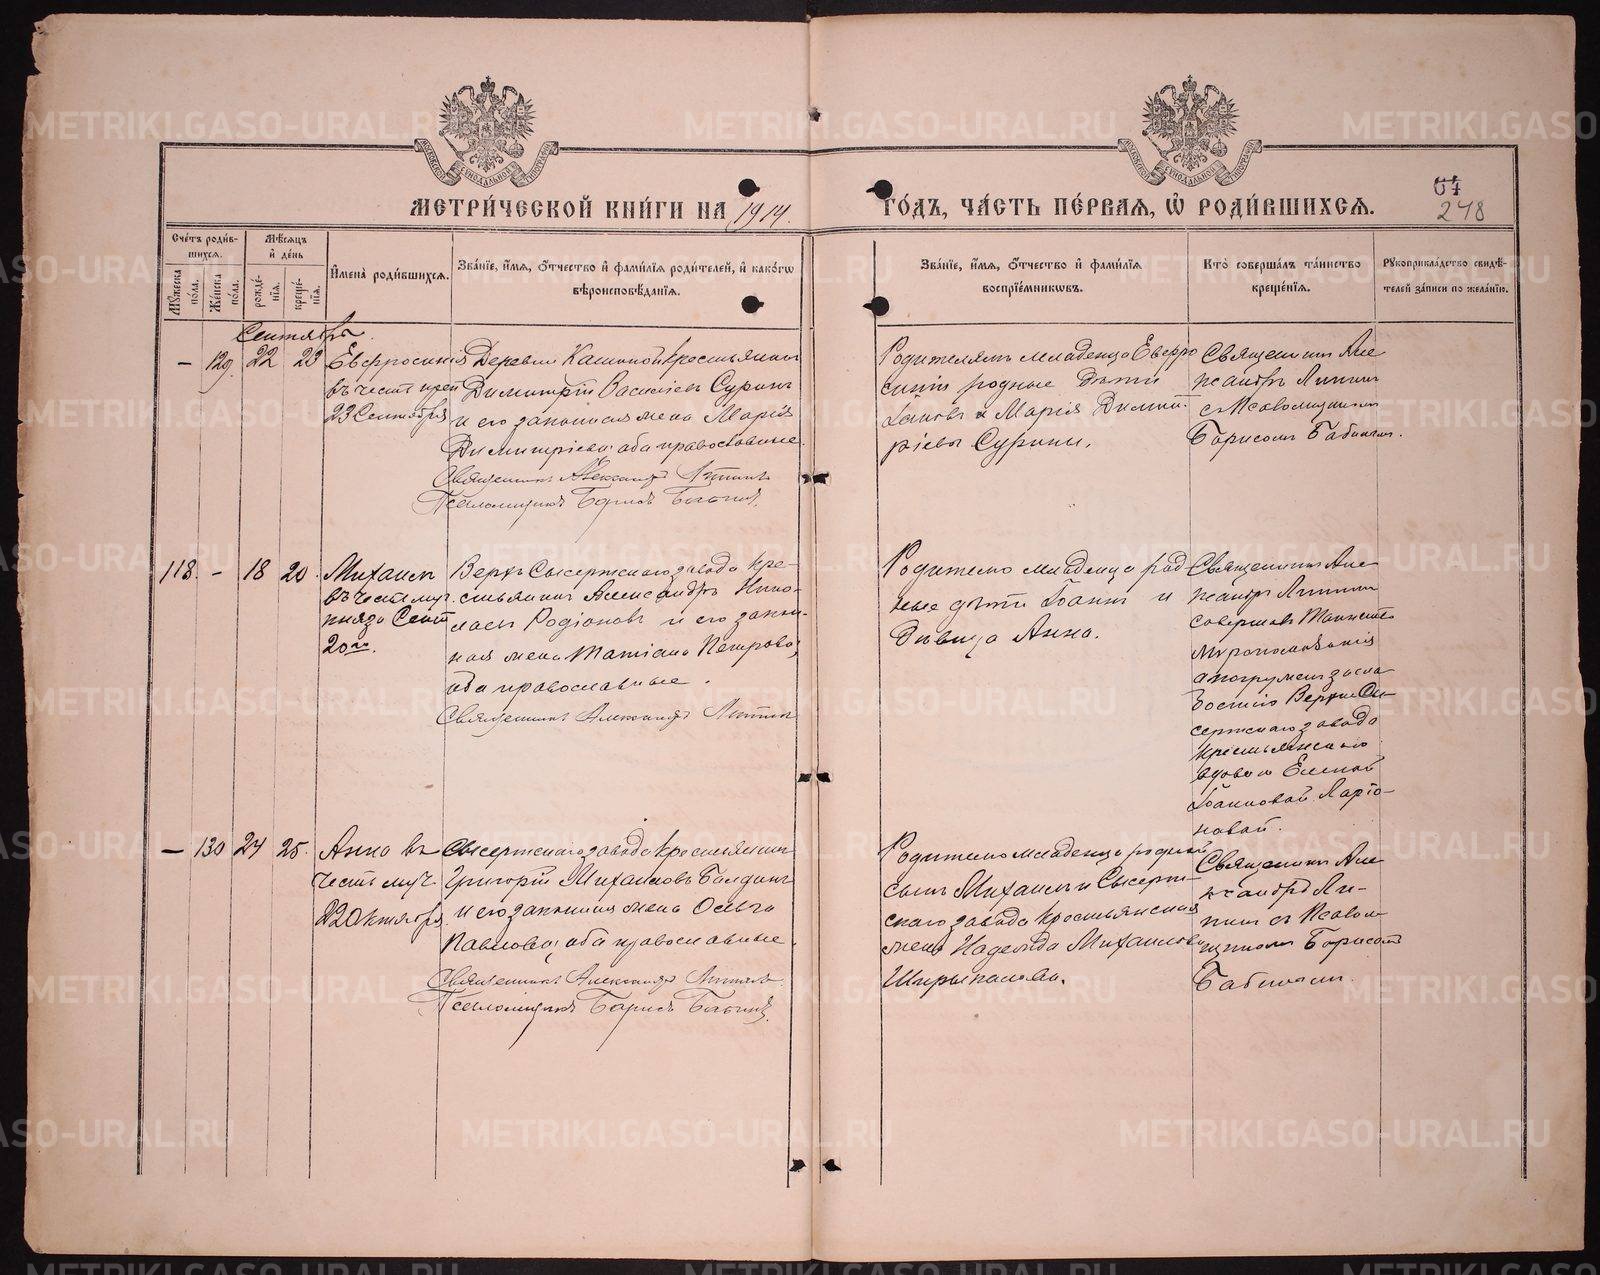 МЕТРИ́ЧЕСКОЙ КНИ́ГИ НА 1914.
ГО́ДЪ, ЧА́СТЬ ПЕ́РВАЯ, Ѡ РОДИ́ВШИХСЯ.
278
Сче́тъ роди́в-
шихся.
Му́жеска пола.
Же́нска пола.
Мѣ́сяцъ
и де́нь
рожде́-
нїя.
креще́-
нїя.
И́мена роди́вшихся.
Зва́нїе, и́мя, ѻ́тчество и фами́лїя роди́телей, и како́гѡ
вѣроисповѣ́данїя.
Зва́нїе, и́мя, ѻ́тчество и фами́лїя
воспрїе́мниковъ.
Кто̀ соверша́лъ та́инство
креще́нїя.
Рꙋкоприкла́дство свидѣ́-
телей за́писи по жела́нїю.
Сентябрь.
— 129. 22 23
Евфросинія
въ честь преп
23 Сентября
Деревни Кашиной крестьянинъ
Димитрій Василіевъ Суринъ
и его законная жена Марія
Димитріева; оба православные.
Священникъ Александръ Литинъ
Псаломщикъ Борисъ Бабинъ.
Родителямъ младенца Евфро
синіи родные дѣти
Іоаннъ и Марія Димит-
ріевы Сурины.
Священникъ Але
ксандръ
съ Псаломщикомъ
Борисомъ Бабинымъ.
118. — 18 20.
Михаилъ
въ честь муч.
князя Сент
20го.
Верхъ Сысертскаго завода кре-
стьянинъ Александръ Нико-
лаевъ Родіоновъ и его закон-
ная жена Татіана Петрова;
оба православные.
Священникъ Александръ
Родителю младенца род
ные дѣти Іоаннъ и
Дѣвица Анна.
Священникъ Але
ксандръ
совершилъ Таинство
Мѵропомазанія
а погруженъ за сла
бостію Верхъ Сы-
сертскаго завода
крестьянскою
вдовою Еленой
Іоанновой Ларіо-
новой.
— 130 24 25.
Анна въ
честь муч.
22 Октября
Сысертскаго завода крестьянинъ
Григорій Михаиловъ Балдинъ
и его законная жена Ольга
Павлова; оба православные.
Священникъ Александръ
Псаломщикъ Борисъ Бабинъ.
Родителю младенца родной
сынъ Михаилъ и Сысерт-
скаго завода крестьянская
жена Надежда Михаилова
Ширыкалова.
Священникъ Але
ксандръ
съ Псалом
щикомъ Борисомъ
Бабинымъ.
METRIKI.GASO-URAL.RU